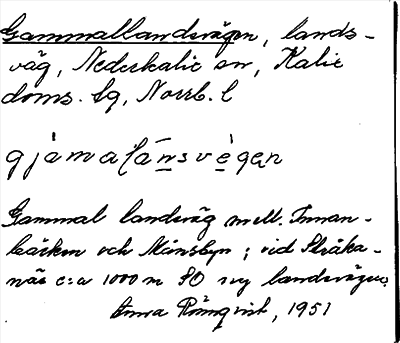 Gammallandsvägen, lands-
väg, Nederkalix sn, Kalix
doms. lg, Norrb. l
gjàmalánsvègen
Gammal landsväg mell. Innan-
bäcken och Månsbyn; vid Stråka-
näs c:a 1000 m SO ny landsvägen.
Anna Rönqvist, 1951